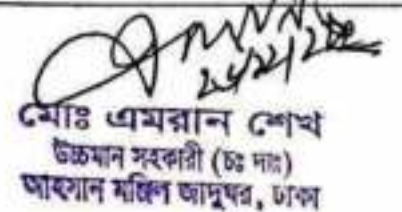 মোঃ এমরান শেখ
উচ্চমান সহকারী (চঃ দাঃ)
আহসান মঞ্জিল জাদুঘর, ঢাকা